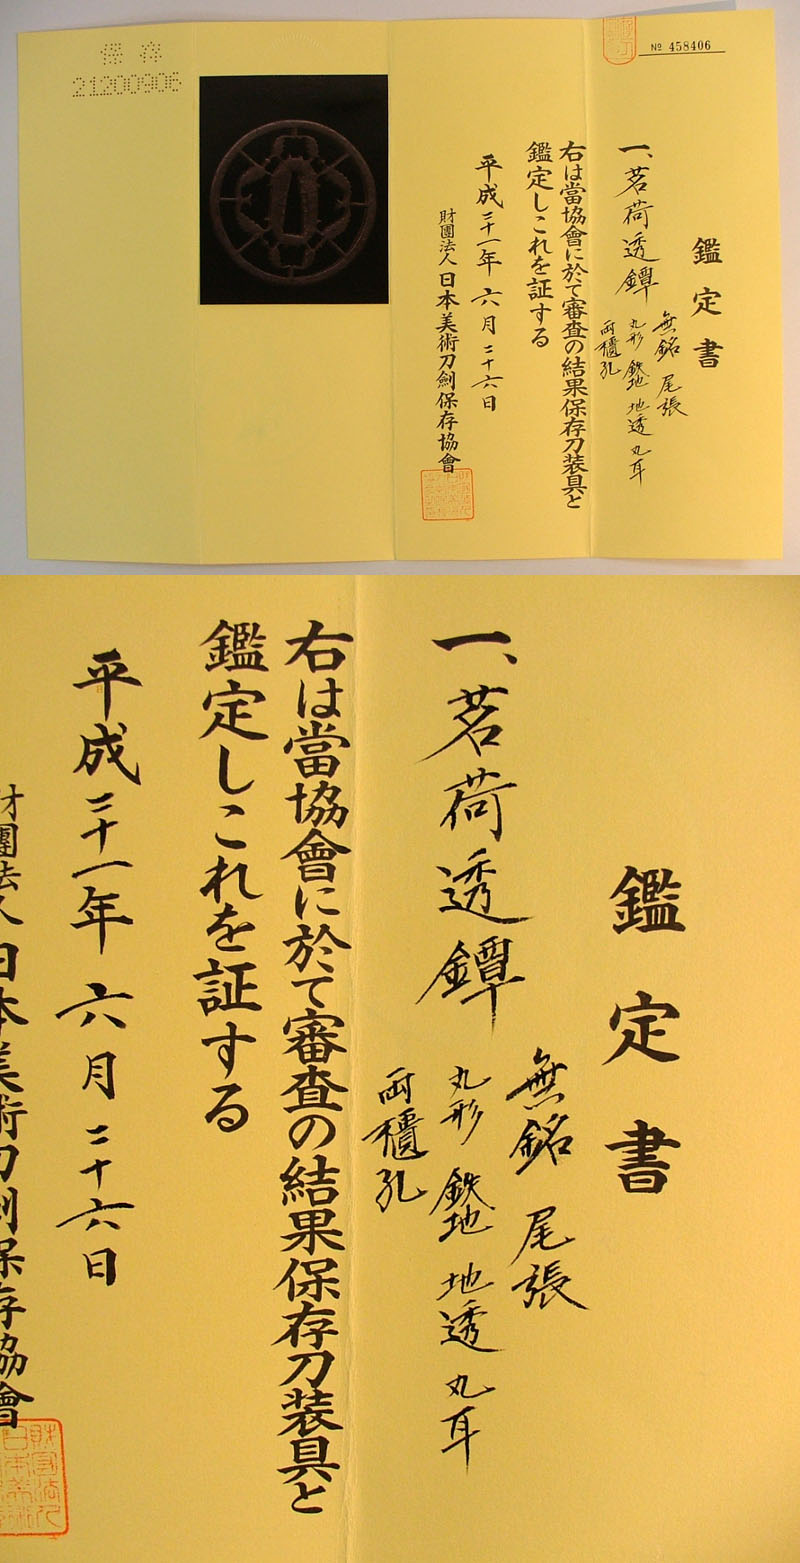 保存
21200906
№ 458406
鑑定書
一、茗荷透鐔
無銘 尾張
丸形 鉄地 地透 丸耳
両櫃孔
右は當協會に於て審査の結果保存刀装具と
鑑定しこれを証する
平成二十一年六月二十六日
財團法人日本美術刀劍保存協會
鑑定書
一、茗荷透鐔
無銘 尾張
丸形 鉄地 地透 丸耳
両櫃孔
右は當協會に於て審査の結果保存刀装具と
鑑定しこれを証する
平成二十一年六月二十六日
財團法人日本美術刀劍保存協會